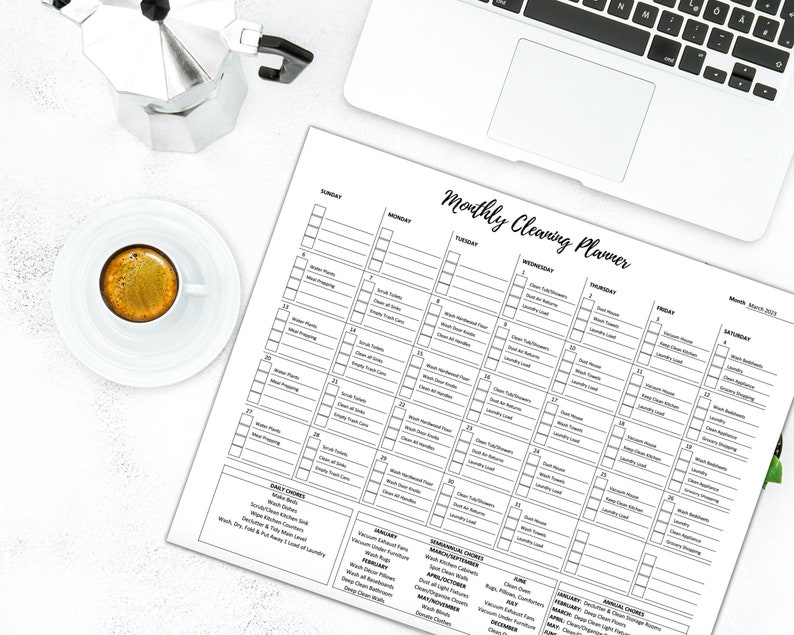 Monthly Cleaning Planner
Month March 2023
SUNDAY
6
Water Plants
Meal Prepping
13
Water Plants
Meal Prepping
20
Water Plants
Meal Prepping
27
Water Plants
Meal Prepping
MONDAY
7
Scrub Toilets
Clean all Sinks
Empty Trash Cans
14
Scrub Toilets
Clean all Sinks
Empty Trash Cans
21
Scrub Toilets
Clean all Sinks
Empty Trash Cans
28
Scrub Toilets
Clean all Sinks
Empty Trash Cans
TUESDAY
8
Wash Hardwood Floor
Wash Door Knobs
Clean All Handles
15
Wash Hardwood Floor
Wash Door Knobs
Clean All Handles
22
Wash Hardwood Floor
Wash Door Knobs
Clean All Handles
29
Wash Hardwood Floor
Wash Door Knobs
Clean All Handles
WEDNESDAY
1
Clean Tub/Showers
Dust Air Returns
Laundry Load
9
Clean Tub/Showers
Dust Air Returns
Laundry Load
16
Clean Tub/Showers
Dust Air Returns
Laundry Load
23
Clean Tub/Showers
Dust Air Returns
Laundry Load
30
Clean Tub/Showers
Dust Air Returns
Laundry Load
THURSDAY
2
Dust House
Wash Towels
Laundry Load
10
Dust House
Wash Towels
Laundry Load
17
Dust House
Wash Towels
Laundry Load
24
Dust House
Wash Towels
Laundry Load
31
Dust House
Wash Towels
Laundry Load
FRIDAY
3
Vacuum House
Keep Clean Kitchen
Laundry Load
11
Vacuum House
Keep Clean Kitchen
Laundry Load
18
Vacuum House
Keep Clean Kitchen
Laundry Load
25
Vacuum House
Keep Clean Kitchen
Laundry Load
SATURDAY
4
Wash Bedsheets
Laundry
Clean Appliance
Grocery Shopping
12
Wash Bedsheets
Laundry
Clean Appliance
Grocery Shopping
19
Wash Bedsheets
Laundry
Clean Appliance
Grocery Shopping
26
Wash Bedsheets
Laundry
Clean Appliance
Grocery Shopping
DAILY CHORES
Make Beds
Wash Dishes
Scrub/Clean Kitchen Sink
Wipe Kitchen Counters
Declutter & Tidy Main Level
Wash, Dry, Fold & Put Away 1 Load of Laundry
SEMIANNUAL CHORES
JANUARY
Vacuum Exhaust Fans
Vacuum Under Furniture
Wash Rugs
FEBRUARY
Wash Décor Pillows
Wash all Baseboards
Deep Clean Bathroom
Deep Clean Walls
MARCH/SEPTEMBER
Wash Kitchen Cabinets
Spot Clean Walls
APRIL/OCTOBER
Dust all Light Fixtures
Clean/Organize Closets
MAY/NOVEMBER
Wash Blinds
Donate Clothes
JUNE
Clean Oven
Rugs, Pillows, Comforters
JULY
Vacuum Exhaust Fans
Vacuum Under Furniture
DECEMBER
ANNUAL CHORES
JANUARY: Declutter & Clean Storage Rooms
FEBRUARY: Deep Clean Floors
MARCH: Deep Clean Light
APRIL: Clean/Organize
MAY: Clean/Organize
JUNE: